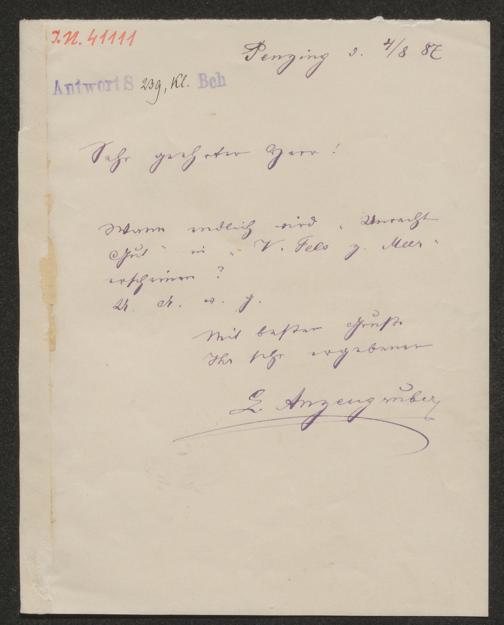 I.N. 41111
Penzing d. 4/8 87
Antwort S 239, Kl. Beh
Sehr geehrter Herr!
Wann endlich wird „Unrecht
Gut" in „V. Fels z. Meer"
erscheinen?
U. A. w. g.
Mit besten Gruße
Ihr sehr ergebener
L. Anzengruber